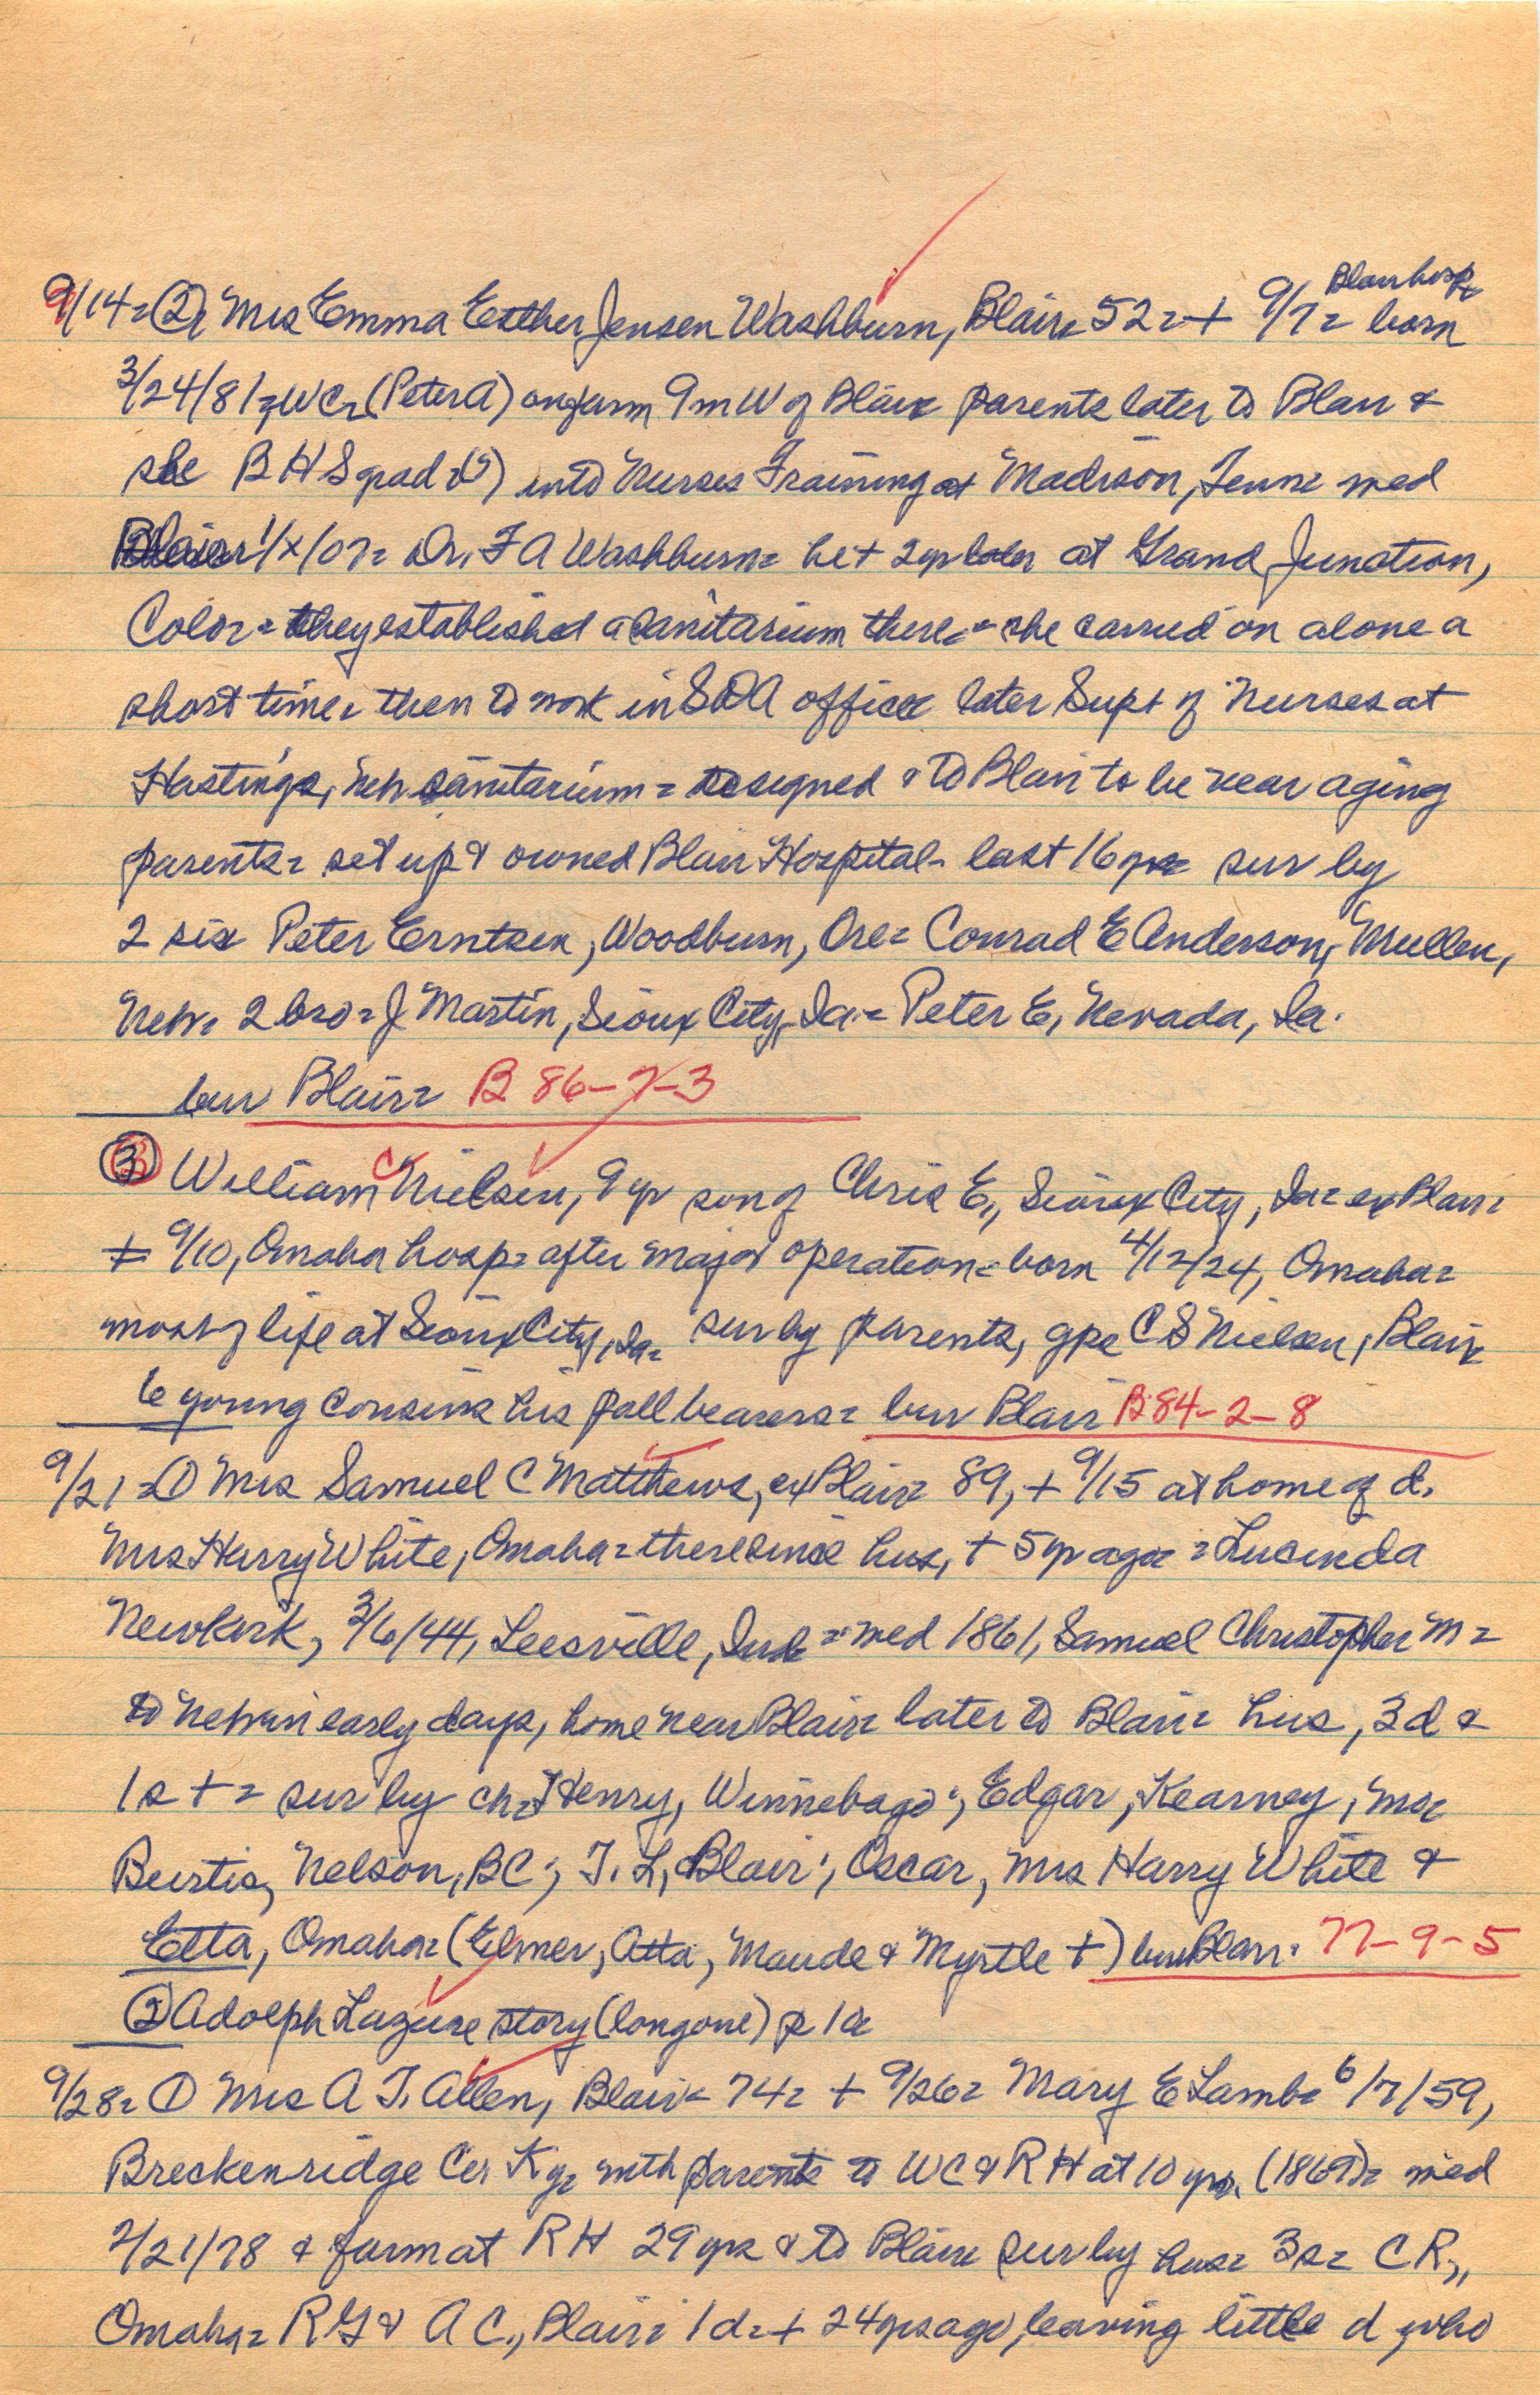 Blair hosp
9/14 = (2) Mrs Emma Esther Jensen Washburn, Blair = 52 = + 9/7 = born
3/24/81 = WC = (Peter A) on farm 9 m W of Blair = parents later to Blair &
she B H S grad (?) into Nurses Training at Madison, Tenn = med
Blair 1/x/07 = Dr. F A Washburn = he + 2 yr later at Grand Junction,
Colo = they established a sanitarium there = she carried on alone a
short time = then to work in SDA office later Supt of Nurses at
Hastings, Neb sanitarium = resigned & to Blair to be near aging
parents = set up & owned Blair Hospital - last 16 yrs = sur by
2 sis Peter Erntsen, Woodburn, Ore = Conrad E Anderson, Mullen,
Neb = 2 bro = J Martin, Sioux City, Ia = Peter E, Nevada, Ia.
bur Blair = B 86-7-3
(3) William C Nielsen, 9 yr son of Chris E., Sioux City, Ia = ex Blair =
+ 9/10, Omaha hosp = after major operation = born 4/12/24, Omaha =
most of life at Sioux City, Ia = sur by parents, gps C S Nielsen, Blair
6 young cousins his pall bearers = bur Blair B 84-2-8
9/21 = (1) Mrs Samuel C Matthews, ex Blair = 89, + 9/15 at home of d.
Mrs Harry White, Omaha = there since hus, + 5 yr ago = Lucinda
Newkirk, 3/6/44, Leesville, Ind = med 1861, Samuel Christopher M =
to Neb in early days, home near Blair = later to Blair = hus, 3 d &
1 s + = sur by ch = Henry, Winnebago; Edgar, Kearney; Mrs
Burtis, Nelson, BC; T. L, Blair; Oscar, Mrs Harry White &
Etta, Omaha = (Elmer, Atta, Maude & Myrtle +) bur Blair. 77-9-5
(2) Adolph Lazure story (long one) p 1 =
9/28 = (1) Mrs A T. Allen, Blair = 74 = + 9/26 = Mary E Lamb = 6/7/59,
Breckenridge Co, Ky = with parents to WC & RH at 10 yrs. (1869) = med
2/21/78 & farm at RH 29 yrs & to Blair = sur by hus = 3 s = C R.,
Omaha = R G & A C., Blair = 1 d = + 24 yrs ago, leaving little d, who